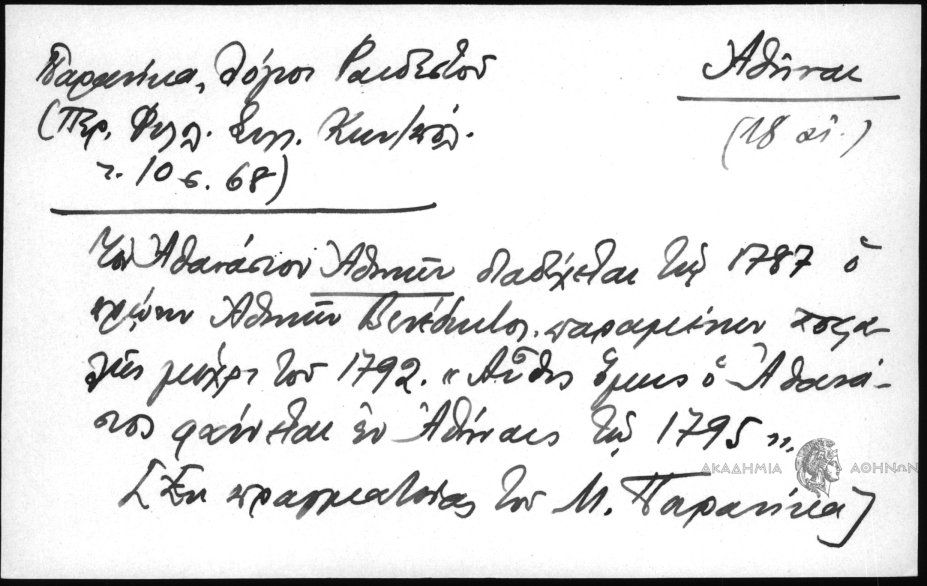 Παρανίκα, Λόγιοι Ραιδεστοῦ
(Περ. Φιλολ. Συλ. Κων/πόλ.
τ. 10 σ. 68)
Ἀθῆναι
(18 αἰ.)
Τὸν Ἀθανάσιον Ἀθηνῶν διαδέχεται τῷ 1787 ὁ
πρώην Ἀθηνῶν Βενέδικτος παραμείνων
μέχρι τοῦ 1792. "Αὖθις ὅμως ὁ Ἀθανά-
σιος φαίνεται ἐν Ἀθήναις τῷ 1795".
[Ἐκ πραγματείας τοῦ Μ. Παρανίκα]
ΑΚΑΔΗΜΙΑ ΑΘΗΝΩΝ